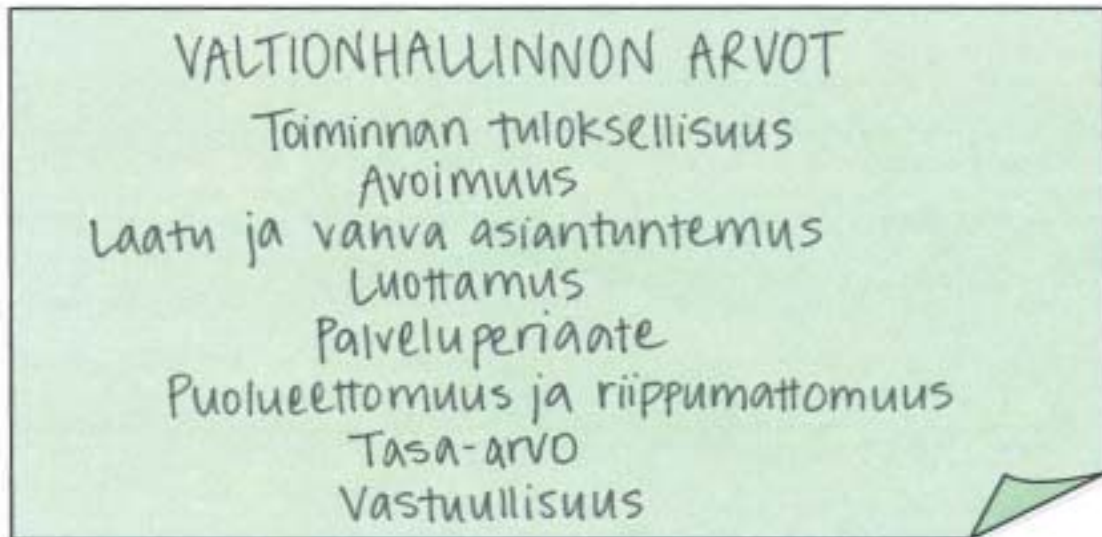 VALTIONHALLINNON ARVOT
Toiminnan tuloksellisuus
Avoimuus
Laatu ja vahva asiantuntemus
Luottamus
Palveluperiaate
Puolueettomuus ja riippumattomuus
Tasa-arvo
Vastuullisuus